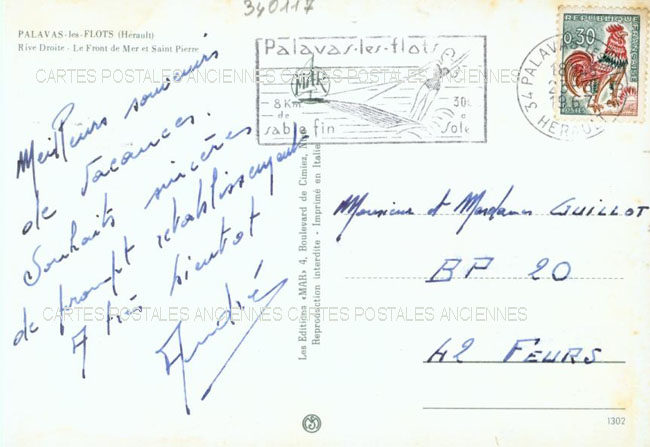 340117
PALAVAS-les-FLOTS (Hérault)
Rive Droite - Le Front de Mer et Saint Pierre
Palavas-les-flots
MAR
8 Km de sable fin
30
sole
REPUBLIQUE FRANÇAISE
0,30
POSTES
34 PALAVAS
HERAULT
CARTES POSTALES ANCIENNES CARTES POSTALES ANCIENNES
Meilleurs souvenirs
de vacances.
Souhaits sincères
de prompt rétablissement
A très bientôt
André
Les Editions «MAR» 4, Boulevard de Cimiez, Nice
Reproduction interdite - Imprimé en Italie
Monsieur et Madame GUILLOT
BP 20
CARTES POSTALES ANCIENNES CARTES POSTALES ANCIENNES
42 FEURS
1302